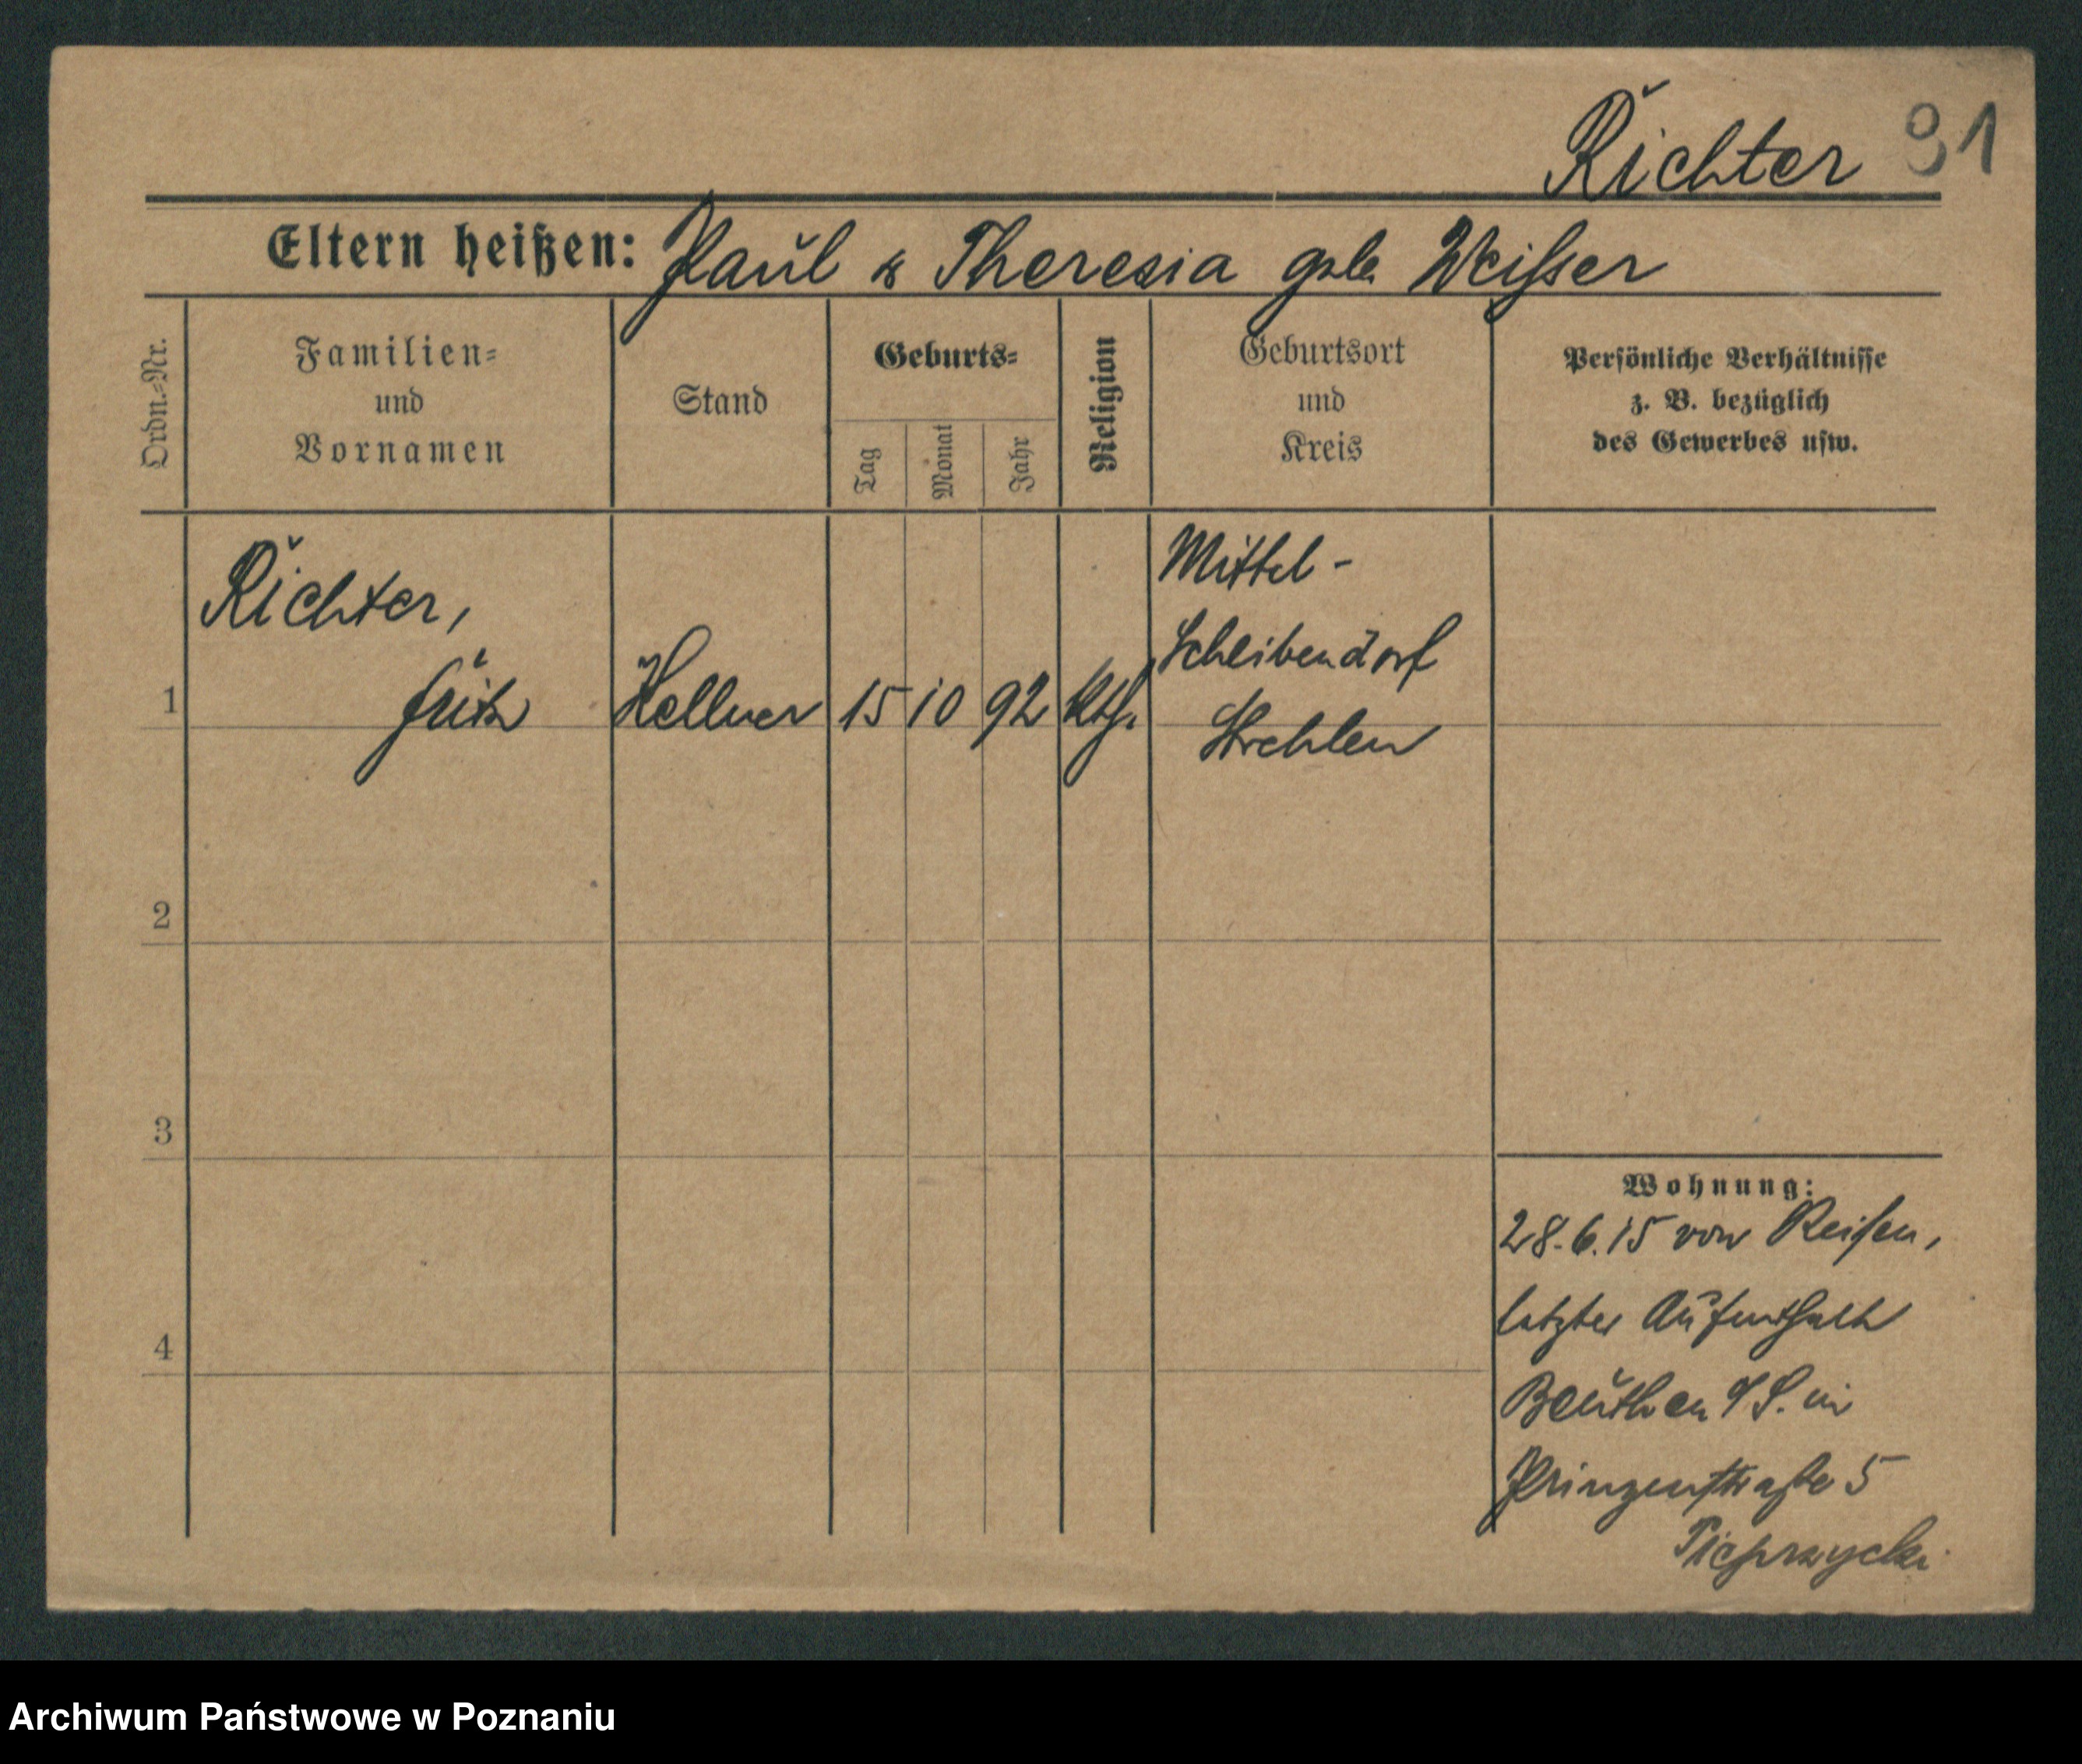 Richter 91
Eltern heißen: Paul & Theresia geb. Weisser
Ordn.-Nr.
Familien-
und
Vornamen
Stand
Geburts-
Tag
Monat
Jahr
Religion
Geburtsort
und
Kreis
Persönliche Verhältnisse
z. B. bezüglich
des Gewerbes usw.
Richter,
Fritz
1
Kellner
15 10 92 kth.
Mittel-
Schreibendorf
Strehlen
2
3
4
Wohnung:
28.6.15 von Reisen,
letzter Aufenthalt
Beuthen O/S. in
Prinzenstraße 5
Pieprzycki
Archiwum Państwowe w Poznaniu